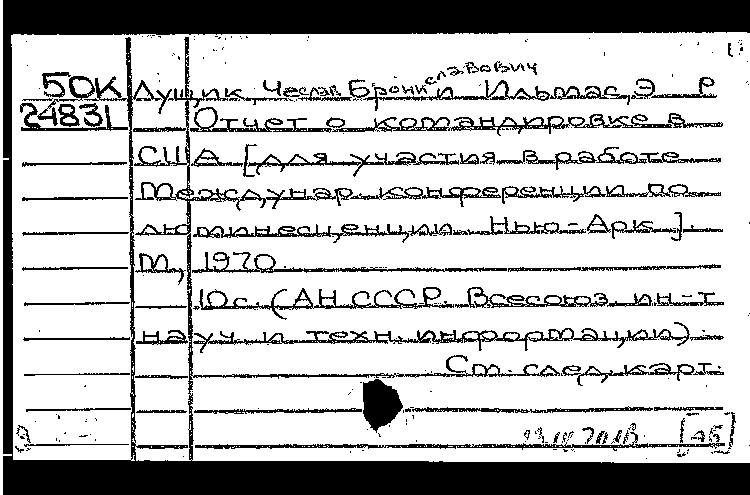 50К Лущик, Чеслав Брониславович и Ильмас, Э Р
24831 Отчет о командировке в
США [для участия в работе
Междунар. конференции по
люминесценции. Нью-Арк].
М, 1970
10 с. (АН СССР. Всесоюз. ин-т
науч. и техн. информации).
См. след. карт.
[АБ]